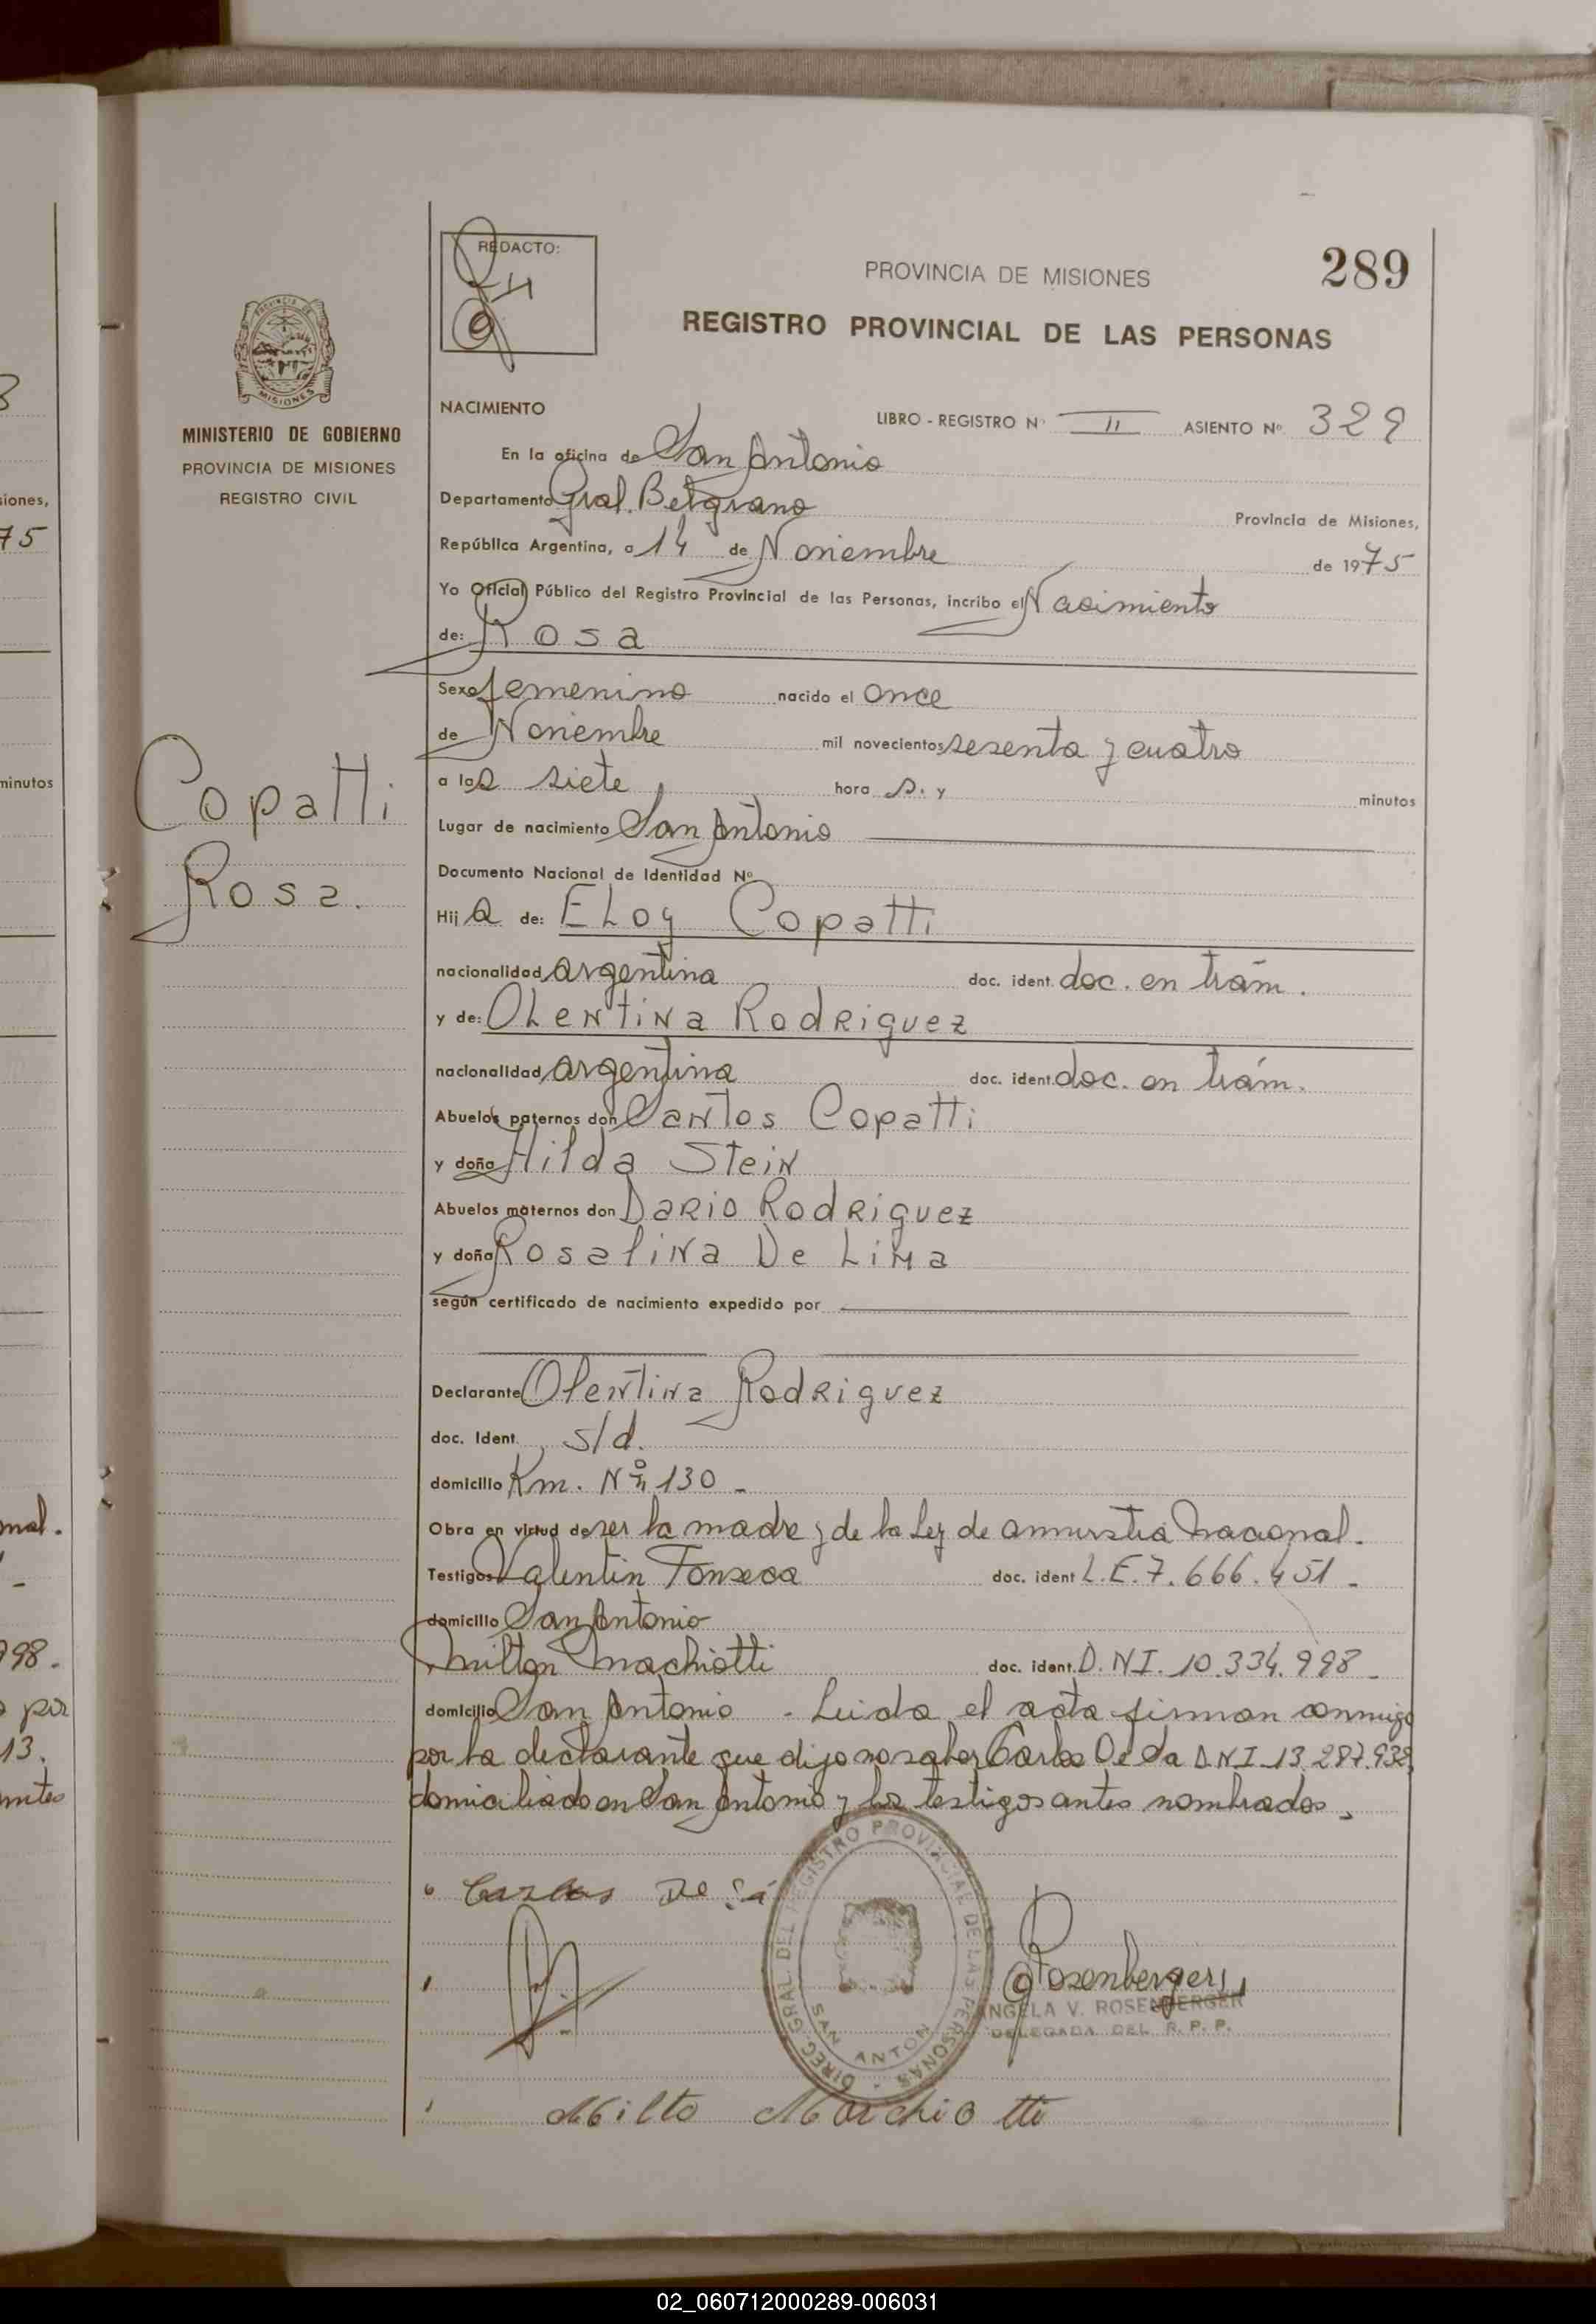 REDACTO:
PROVINCIA DE MISIONES
289
REGISTRO PROVINCIAL DE LAS PERSONAS
MISIONES
MINISTERIO DE GOBIERNO
PROVINCIA DE MISIONES
REGISTRO CIVIL
NACIMIENTO
LIBRO - REGISTRO Nº II ASIENTO Nº 329
En la oficina de San Antonio
Departamento Gral. Belgrano Provincia de Misiones,
República Argentina, a 14 de Noviembre de 1975
Yo Oficial Público del Registro Provincial de las Personas, incribo el Nacimiento
de: Rosa
Sexo femenino nacido el once
de Noviembre mil novecientos sesenta y cuatro
a las siete hora s. y minutos
Copatti
Rosa.
Lugar de nacimiento San Antonio
Documento Nacional de Identidad Nº
Hija de: ELoy Copatti
nacionalidad argentina doc. ident. doc. en trám.
y de: OLentina Rodriguez
nacionalidad argentina doc. ident. doc. en trám.
Abuelos paternos don Santos Copatti
y doña Hilda Stein
Abuelos maternos don Dario Rodriguez
y doña Rosalina De Lima
según certificado de nacimiento expedido por
Declarante Olentina Rodriguez
doc. Ident. s/d.
domicilio Km. Nº 130 -
Obra en virtud de ser la madre y de la Ley de amnistia Nacional.
Testigos Valentin Fonseca doc. ident L.E. 7.666.451 -
domicilio San Antonio
Milton Machiotti doc. ident. D.N.I. 10.334.998 -
domicilio San Antonio - Leida el acta firman conmigo
por la declarante que dijo no saber Carlos De Sa D.N.I. 13.287.932
domiciliado en San Antonio y los testigos antes nombrados.
Carlos De Sá
DIREC. GRAL. DEL REGISTRO PROVINCIAL DE LAS PERSONAS
SAN ANTONIO
Rosenberger
ANGELA V. ROSENBERGER
DELEGADA DEL R. P. P.
Milto Marchiotti
siones,
75
minutos
nal.
998.
o por
13.
02_060712000289-006031